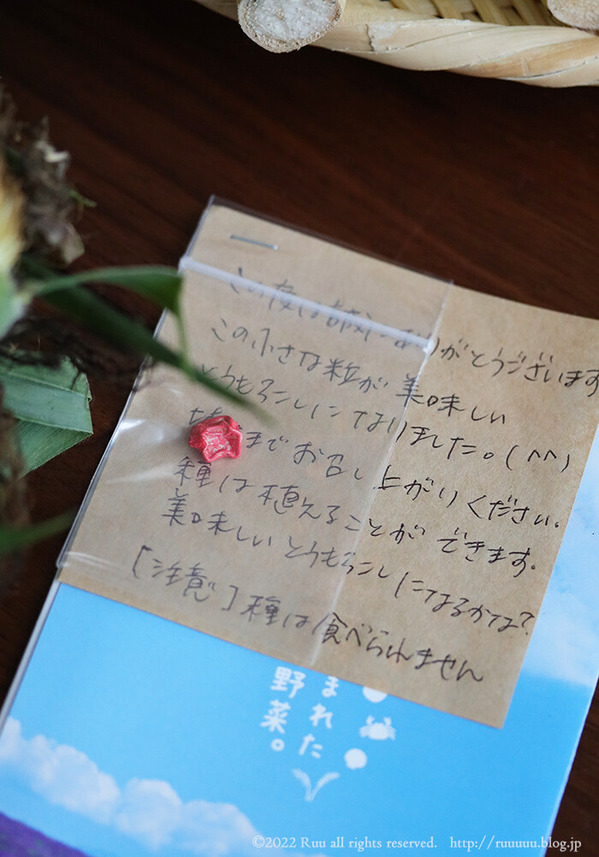 この度は誠にありがとうございます
この小さな粒が美味しい
とうもろこしになりました。(^^)
までお召し上がりください。
種は植えることができます。
美味しいとうもろこしになるかな?
[注意]種は食べられません
まれた
野菜。
©2022 Ruu all rights reserved. http://ruuuuu.blog.jp